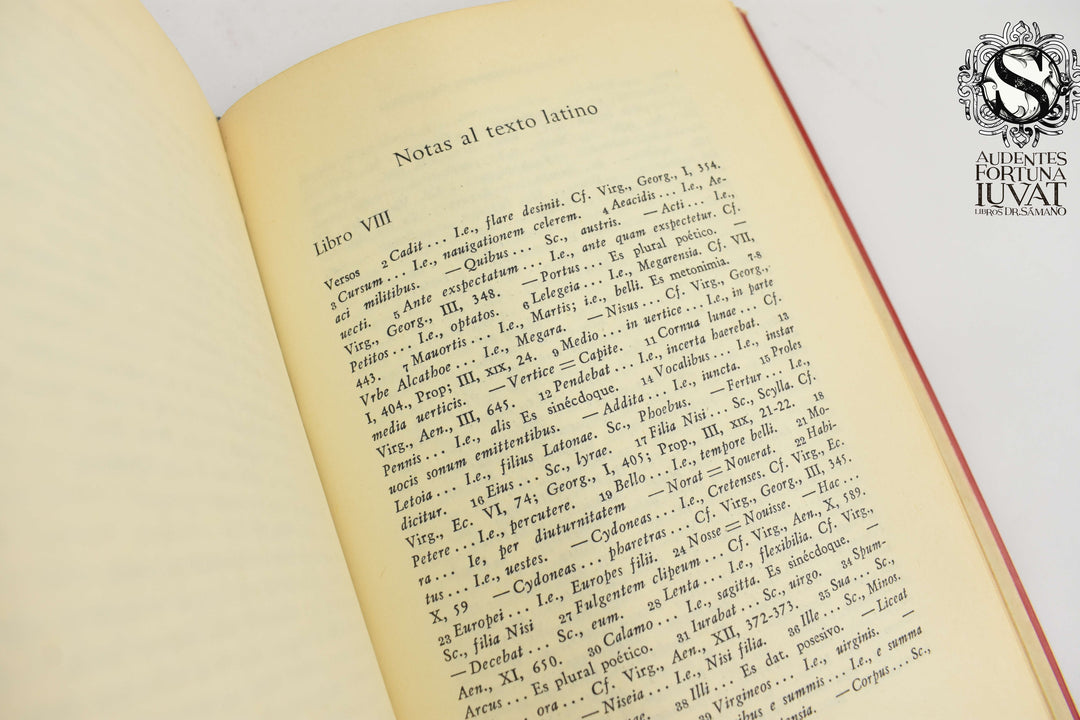 Notas al texto latino
Libro VIII
Versos 2 Cadit... I.e., flare desinit. Cf. Virg., Georg., I, 354.
3 Cursum... I.e., nauigationem celerem. 4 Aeacidis... I.e., Ae-
aci militibus. —Quibus... Sc., austris. —Acti... I.e.,
uecti. 5 Ante exspectatum... I.e., ante quam exspectetur. Cf.
Virg., Georg., III, 348. —Portus... Es plural poético. —
Petitos... I.e., optatos. 6 Lelegeia... I.e., Megarensia. Cf. VII,
443. 7 Mauortis... I.e., Martis; i.e., belli. Es metonimia. 7-8
Vrbe Alcathoe... I.e., Megara. —Nisus... Cf. Virg., Georg.,
I, 404., Prop; III, xix, 24. 9 Medio... in uertice... I.e., in parte
media uerticis. —Vertice=Capite. 11 Cornua lunae... Cf.
Virg., Aen., III, 645. 12 Pendebat... I.e., incerta haerebat. 13
Pennis... I.e., alis Es sinécdoque. 14 Vocalibus... I.e., instar
uocis sonum emittentibus. —Addita... I.e., iuncta. 15 Proles
Letoia... I.e., filius Latonae. Sc., Phoebus. —Fertur... I.e.,
dicitur. 16 Eius... Sc., lyrae. 17 Filia Nisi... Sc., Scylla. Cf.
Virg., Ec. VI, 74; Georg., I, 405; Prop., III, xix, 21-22. 18
Petere... I.e., percutere. 19 Bello... I.e., tempore belli. 21 Mo-
ra... Ie, per diuturnitatem —Norat=Nouerat. 22 Habi-
tus... I.e., uestes. —Cydoneas... I.e., Cretenses. Cf. Virg., Ec.
X, 59 —Cydoneas... pharetras... Cf. Virg., Georg., III, 345.
23 Europei... I.e., Europes filii. 24 Nosse=Nouisse. —Hac...
Sc., filia Nisi 27 Fulgentem clipeum... Cf. Virg., Aen., X, 589.
—Decebat... Sc., eum. 28 Lenta... I.e., flexibilia. Cf. Virg.,
Aen., XI, 650. 30 Calamo... I.e., sagitta. Es sinécdoque. —
Arcus... Es plural poético. 31 Iurabat... Sc., uirgo. 34 Spum-
ora... Cf. Virg., Aen., XII, 372-373. 35 Sua... Sc.,
—Niseia... I.e., Nisi filia. 36 Ille... Sc., Minos.
38 Illi... Es dat. posesivo. —Liceat
39 Virgineos... I.e., uirginis. —
ibus e summis... I.e., e summa
tensia. —Corpus... Sc.,
S
AUDENTES
FORTUNA
IUVAT
LIBROS DR. SÁMANO